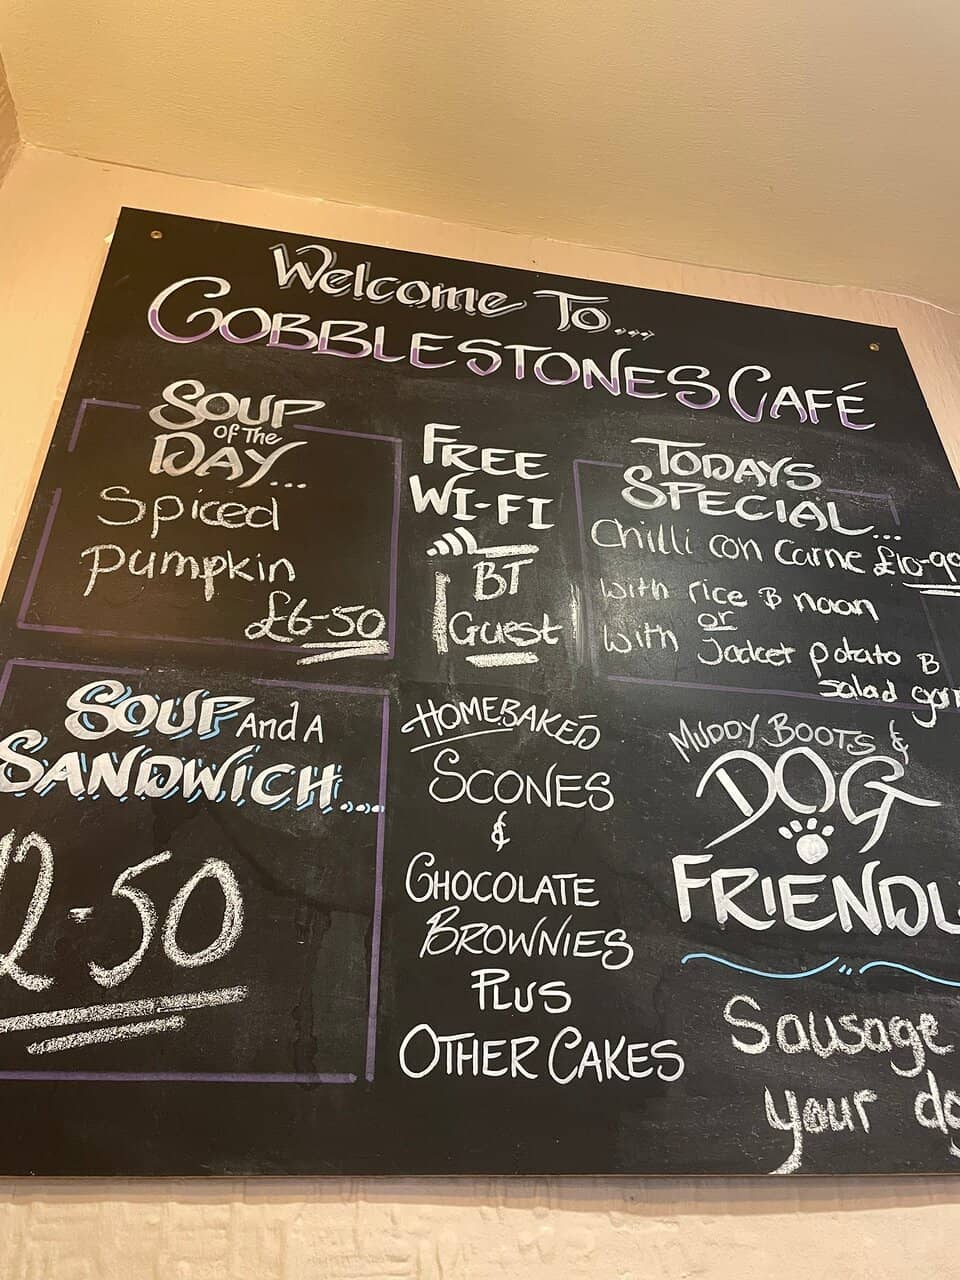 Welcome To...
COBBLESTONES CAFÉ
SOUP
OF THE
DAY...
Spiced
pumpkin
£6-50
FREE
WI-FI
BT
Guest
TODAYS
SPECIAL...
Chilli con Carne £10-90
with rice & naan
or
with Jacket potato &
salad garn
SOUP And A
SANDWICH...
12-50
HOMEBAKED
SCONES
&
CHOCOLATE
BROWNIES
PLUS
OTHER CAKES
MUDDY BOOTS &
DOG
FRIENDL
Sausage
your do